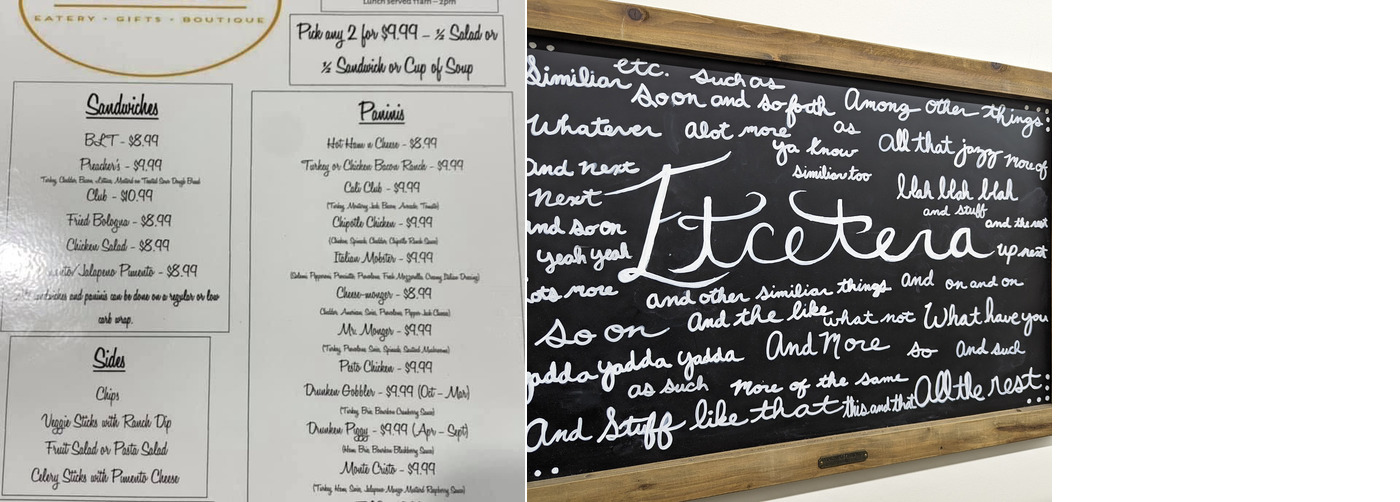 EATERY • GIFTS • BOUTIQUE
Lunch served 11am – 2pm
Pick any 2 for $9.99 – ½ Salad or
½ Sandwich or Cup of Soup
Sandwiches
BLT - $8.99
Preacher's - $9.99
Turkey, Cheddar, Bacon, Lettuce, Mustard on Toasted Sour Dough Bread
Club - $10.99
Fried Bologna - $8.99
Chicken Salad - $8.99
Jalapeno Pimento - $8.99
sandwiches and paninis can be done on a regular or low
carb wrap.
Sides
Chips
Veggie Sticks with Ranch Dip
Fruit Salad or Pasta Salad
Celery Sticks with Pimento Cheese
Paninis
Hot Ham n Cheese - $8.99
Turkey or Chicken Bacon Ranch - $9.99
Cali Club - $9.99
(Turkey, Monterey Jack, Bacon, Avocado, Tomato)
Chipotle Chicken - $9.99
(Chicken, Spinach, Cheddar, Chipotle Ranch Sauce)
Italian Mobster - $9.99
(Salami, Pepperoni, Prosciutto, Provolone, Fresh Mozzarella, Creamy Italian Dressing)
Cheese-monger - $8.99
(Cheddar, American, Swiss, Provolone, Pepper-Jack Cheese)
Mr. Monger - $9.99
(Turkey, Provolone, Swiss, Spinach, Sautéed Mushrooms)
Pesto Chicken - $9.99
Drunken Gobbler - $9.99 (Oct – Mar)
(Turkey, Brie, Bourbon Cranberry Sauce)
Drunken Piggy - $9.99 (Apr – Sept)
(Ham, Brie, Bourbon Blackberry Sauce)
Monte Cristo - $9.99
(Turkey, Ham, Swiss, Jalapeno Mango Mustard Raspberry Sauce)
Similiar etc. such as
So on and so forth Among other things
Whatever alot more as
ya know All that jazz more of
And next similiar too
Next blah blah blah
and stuff and the rest
And so on Etcetera
yeah yeah up next
lots more and other similiar things And on and on
So on And the like what not What have you
yadda yadda yadda And More so And such
as such More of the same
And Stuff like that this and that All the rest